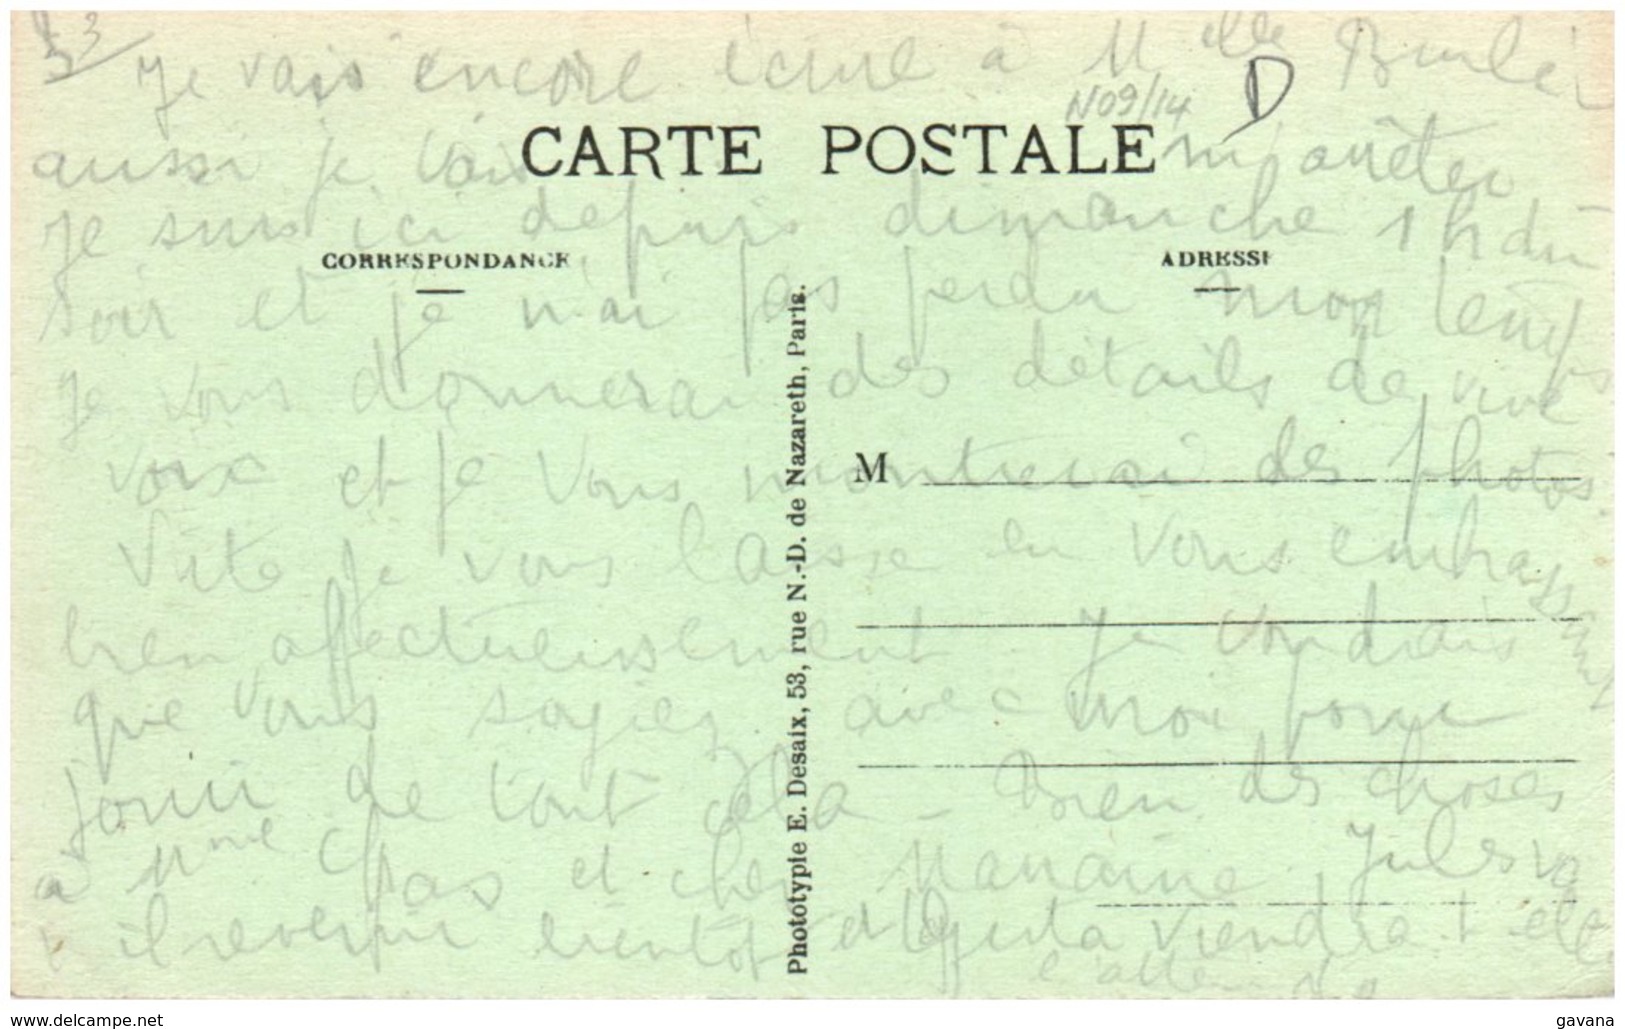 33
Je vais encore écrire à Melle
N09/14 D
CARTE POSTALE
aussi je vais m'arrêter
je suis ici depuis dimanche 1h du
CORRESPONDANCE ADRESSE
soir et je n'ai pas perdu mon temps
je vous donnerai des détails de vive
voix et je vous montrerai des photos.
M
Vite je vous laisse en vous embrassant
bien affectueusement Je voudrais
que vous soyiez avec moi pour
jouir de tout cela - Bien des choses
à Mme et chez Jules va
il revenir bientôt et viendra
Phototypie E. Desaix, 53, rue N.-D. de Nazareth, Paris.
www.delcampe.net
gavana